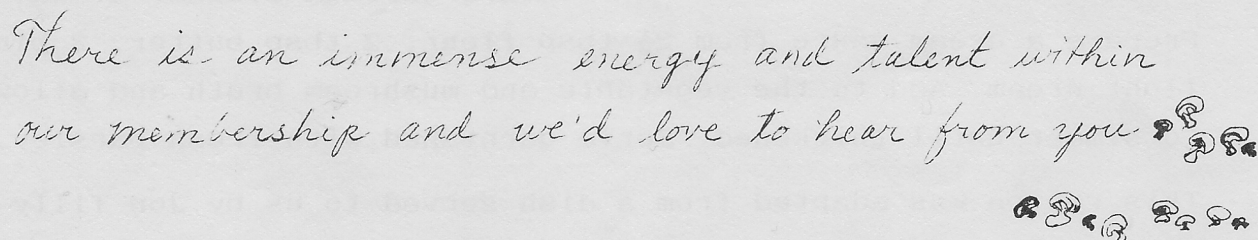 There is an immense energy and talent within
our membership and we'd love to hear from you